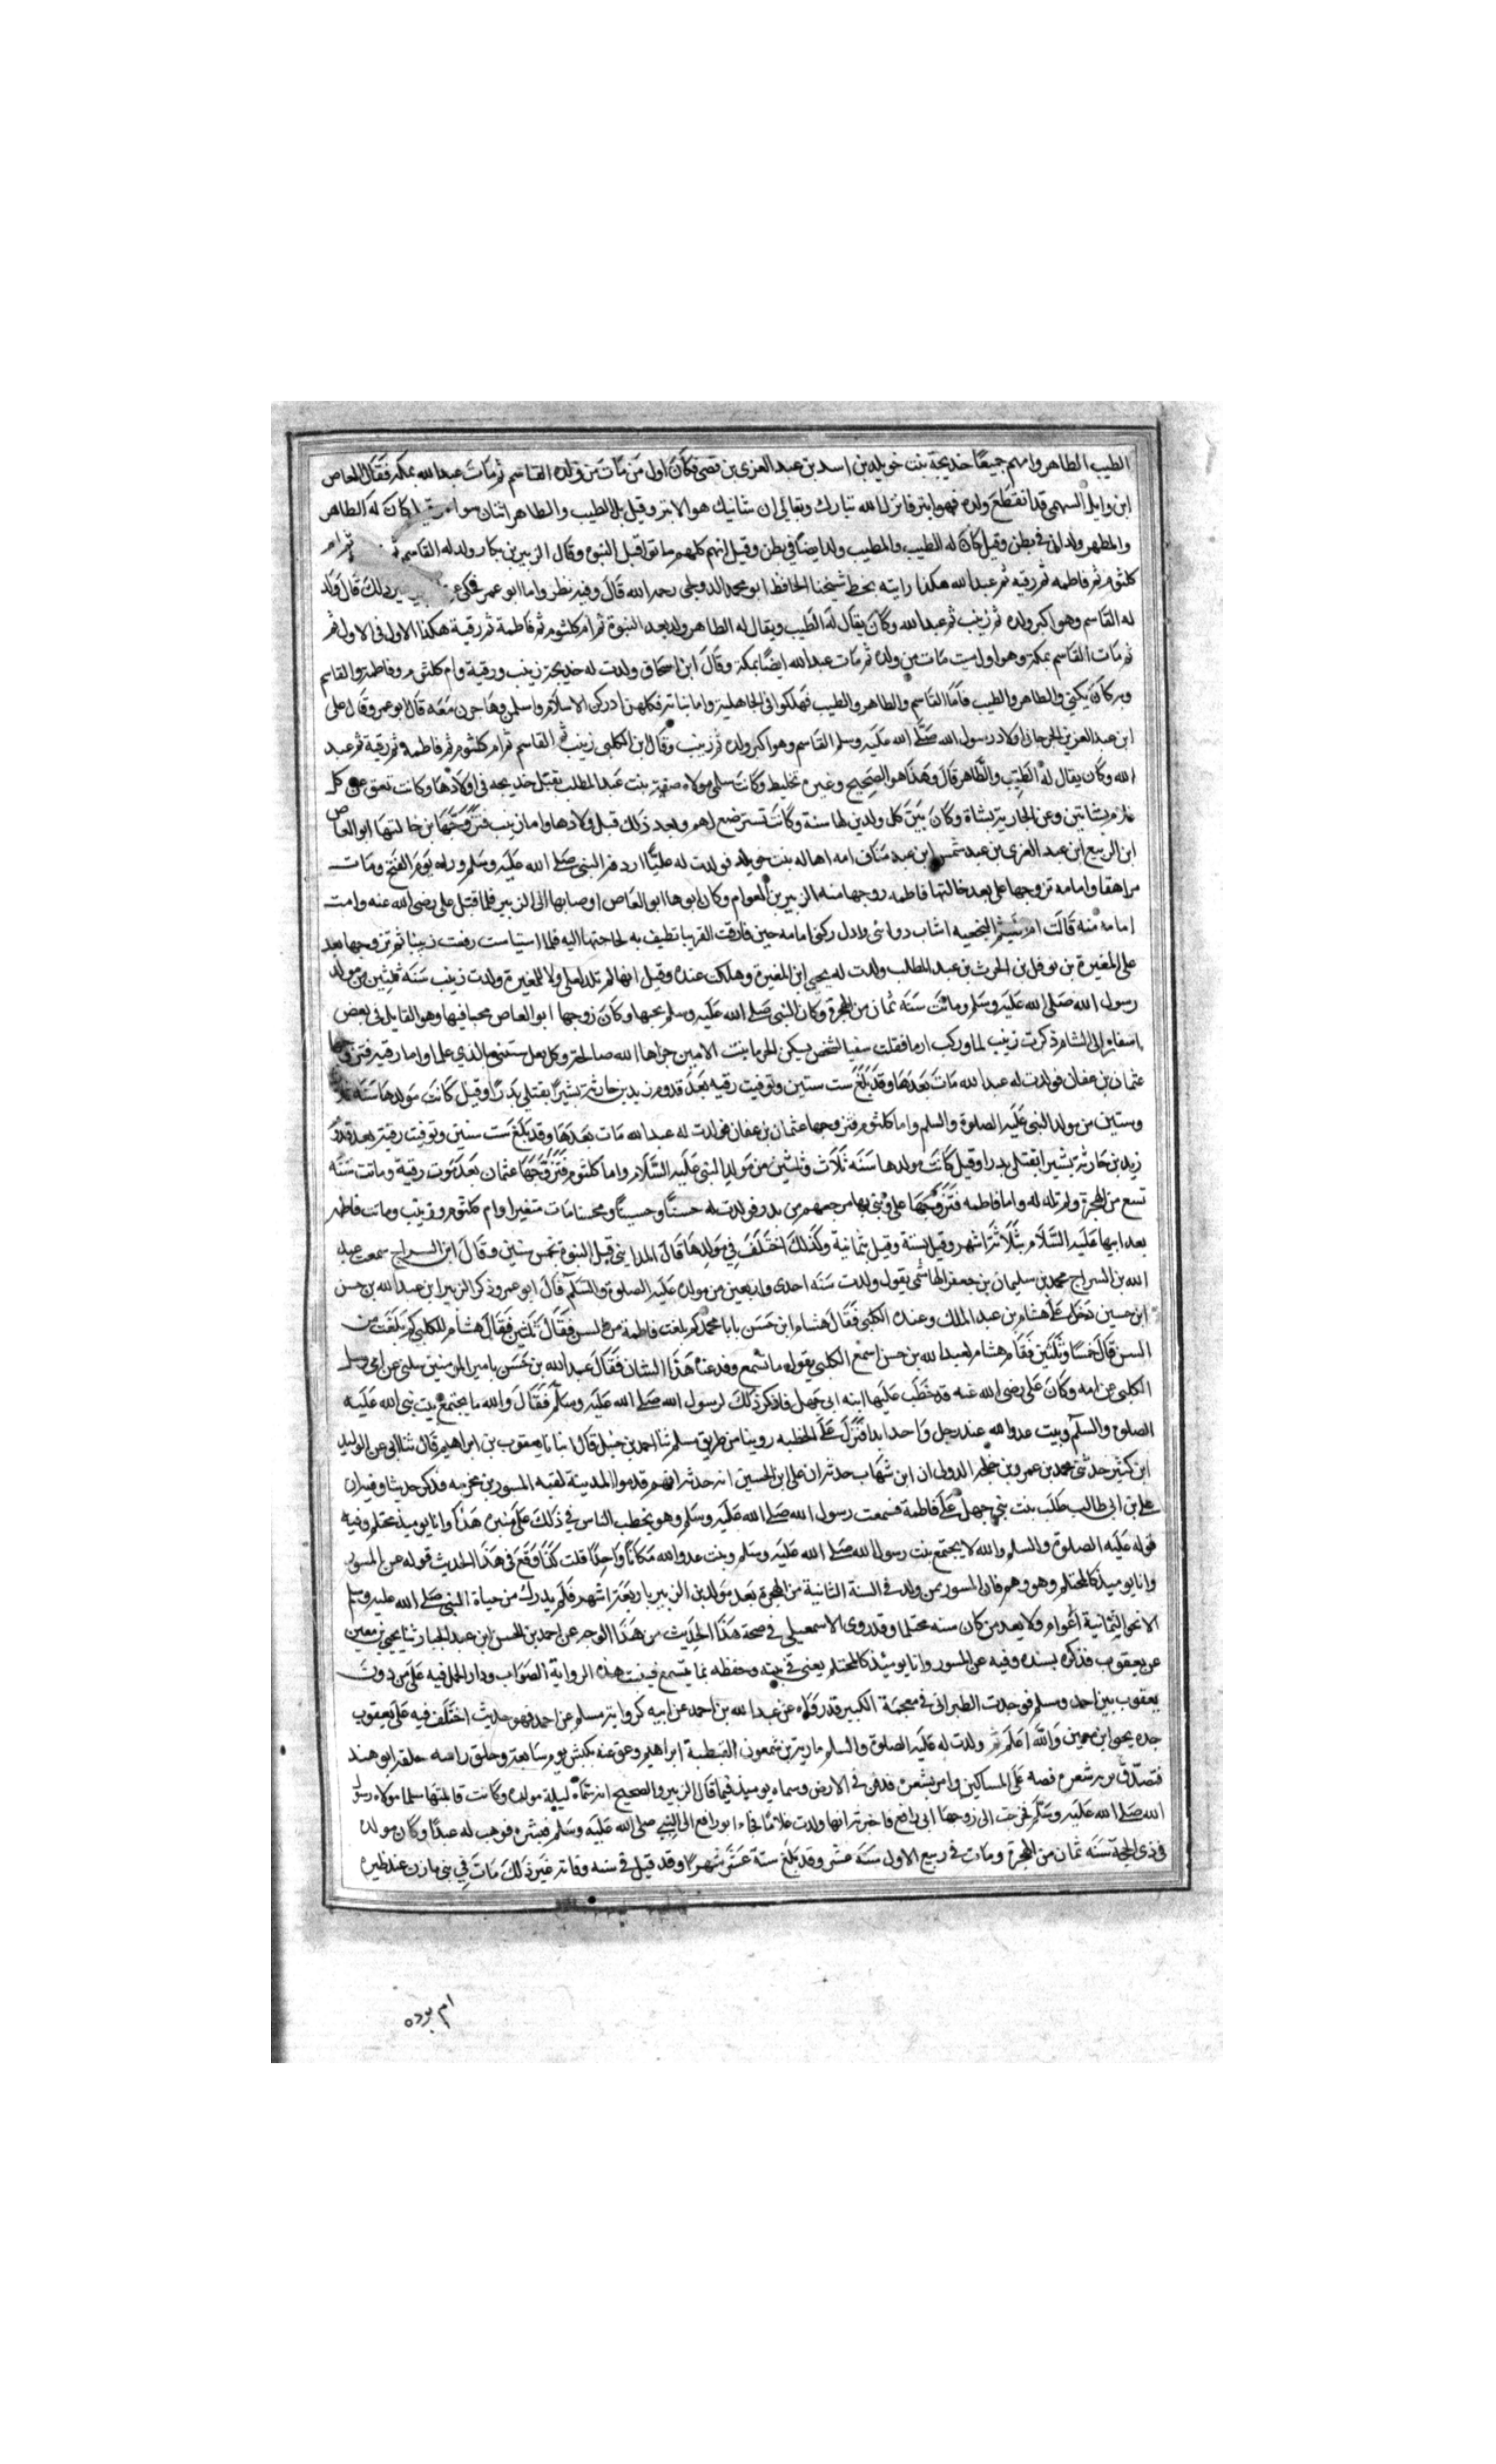 الطيب الطاهر وامهم جميعًا خديجة بنت خويلد بن اسد بن عبد العزى بن قصي فكان اول من مات من ولده القاسم ثم مات عبد الله بمكة فقال العاص
ابن وايل السهمي قد انقطع ولده فهو ابتر فانزل الله تبارك وتعالى ان شانيك هو الابتر وقيل بل الطيب والطاهر اثنان سوا كان له الطاهر
والمطهر ولدا في بطن وقيل كان له الطيب والمطيب ولدا ايضًا في بطن وقيل انهم كلهم ماتوا قبل النبوه وقال الزبير بن بكار ولد له القاسم ثم ام
كلثوم ثم فاطمه ثم رقيه ثم عبد الله هكذا رايته بخط شيخنا الحافظ ابو محمد الدمياطي رحمه الله قال وفيه نظر واما ابو عمر فحكى غير ذلك قال ولد
له القاسم وهو اكبر ولده ثم زينب ثم عبد الله وكان يقال له الطيب ويقال له الطاهر ولد بعد النبوة ثم ام كلثوم ثم فاطمة ثم رقية هكذا الاول فالاول ثم
ثم مات القاسم بمكة وهو اول ميت مات من ولده ثم مات عبد الله ايضًا بمكة وقال ابن اسحاق ولدت له خديجة زينب ورقية وام كلثوم وفاطمة والقاسم
وبه كان يكنى والطاهر والطيب فاما القاسم والطاهر والطيب فهلكوا في الجاهلية واما بناته فكلهن ادركن الاسلام واسلمن وهاجرن معه قال ابو عمر وقال على
ابن عبد العزيز الجرجاني اولاد رسول الله صلى الله عليه وسلم القاسم وهو اكبر ولده ثم زينب وقال ابن الكلبي زينب ثم القاسم ثم ام كلثوم ثم فاطمه ثم رقية ثم عبد
الله وكان يقال له الطيب والطاهر قال وهذا هو الصحيح وغيره تخليط وكانت سلمى مولاه صفيه بنت عبد المطلب تقبل خديجه في اولادها وكانت تعق عن كل
غلام بشاتين وعن الجارية بشاة وكان بين كل ولدين لها سنة وكانت تسترضع لهم وبعد ذلك قبل ولادها واما زينب فتزوجها ابن خالتها ابو العاص
ابن الربيع ابن عبد العزى بن عبد شمس ابن عبد مناف امه هاله بنت خويلد فولدت له عليًا اردفه النبي صلى الله عليه وسلم وراه يوم الفتح ومات
مراهقا وامامه تزوجها على بعد خالتها فاطمه زوجها منه الزبير بن العوام وكان ابوها ابو العاص اوصا بها الى الزبير فلما قتل على رضى الله عنه وامت
امامة منه قالت ام الهيثم النخعيه اشاب ذوائبي واذل ركني امامه حين فارقت القرينا تطيف به لحاجتها اليه فلما استياست رفعت رنينا ثم تزوجها بعد
على المغيرة بن نوفل بن الحرث بن عبد المطلب ولدت له يحيى ابن المغيرة وهلكت عنده وقيل انها لم تلد لعلى ولا للمغيرة ولدت زينب سنة ثلثين من مولد
رسول الله صلى الله عليه وسلم وماتت سنة ثمان من الهجرة وكان النبي صلى الله عليه وسلم يحبها وكان زوجها ابو العاص محبا فيها وهو القايل في بعض
اسفاره الى الشام ذكرت زينب لما وركت ارما فقلت سقيا لشخص يسكن الحرما بنت الامين جزاها الله صالحة وكل بعل سيثنى بالذي علما واما رقيه فتزوجها
عثمان بن عفان فولدت له عبد الله مات بعدها وقد بلغ ست سنين وتوفيت رقيه بعد قدوم زيد بن حارثة بشيرًا بقتلى بدرًا وقيل كانت مولدها سنة ثلاث
وستين من مولد النبي عليه الصلوة والسلم واما كلثوم فتزوجها عثمان بن عفان فولدت له عبد الله مات بعدها وقد بلغ ست سنين وتوفيت رقية بعد قدوم
زيد بن حارثة بشيرا بقتلى بدرا وقيل كانت مولدها سنة ثلاث وثلثين من مولد النبي عليه السلام واما كلثوم فتزوجها عثمان بعد موت رقية وماتت سنه
تسع من الهجرة ولم تلد له واما فاطمه فتزوجها على وبنى بها مرجعهم من بدر فولدت له حسنًا وحسينًا ومحسنا مات صغيرا وام كلثوم وزينب وماتت فاطمه
بعد ابيها عليه السلام بثلاثة اشهر وقيل بستة وقيل بثمانية وكذلك اختلف في مولدها قال المدايني قبل النبوة بخمس سنين وقال ابن السراج سمعت عبد
الله بن السراج محمد بن سليمان بن جعفر الهاشمي يقول ولدت سنه احدى واربعين من مولده عليه الصلوة والسلام قال ابو عمر وذكر الزبير ابن عبد الله بن حسن
ابن حسين دخل على هشام بن عبد الملك وعنده الكلبي فقال هشام ابن حسن يابا محمد كم بلغت فاطمة من السن فقال ثلثين فقال هشام للكلبي كم بلغت من
السن قال خمسًا وثلثين فقال هشام لعبد الله بن حسن اسمع الكلبي يقول ما تسمع وقد عنا هذا الشان فقال عبد الله بن حسن يا امير المومنين سلني عن امي وسل
الكلبي عن امه وكان على رضى الله عنه قد خطب عليها ابنه ابى جهل فاذكر ذلك لرسول الله صلى الله عليه وسلم فقال والله ما يجتمع بيت نبى الله عليه
الصلوه والسلام وبيت عدو الله عند رجل واحد ابدا فنزل على الخطبه روينا من طريق مسلم ثنا احمد بن حنبل قال انبانا يعقوب بن ابراهيم قال ثنا ابى عن الوليد
ابن كثير حدثنى محمد بن عمرو بن حلحلة الدولى ان ابن شهاب حدثه ان على ابن الحسين انه حدثه انهم قدموا المدينة لقيه المسور بن مخرمه فذكر حديثا وفيه ان
على بن ابى طالب طلب بنت ابي جهل على فاطمة فسمعت رسول الله صلى الله عليه وسلم وهو يخطب الناس في ذلك على منبره هذا وانا يوميذ محتلم وفيه
قوله عليه الصلوة والسلم والله لا يجتمع بنت رسول الله صلى الله عليه وسلم وبنت عدو الله مكانًا واحدًا قلت كذا وقع في هذا الحديث قوله عن المسور
وانا يوميذ كالمحتلم وهو وهم فان المسور ممن ولد في السنة الثانية من الهجرة بعد مولد ابن الزبير باربعة اشهر فلم يدرك من حياة النبي صلى الله عليه وسلم
الا نحو الثمانية اعوام ولا يعد من كان سنه محتلما وقد روى الاسمعيلى في صحة هذا الحديث من هذا الوجه عن احمد بن الحسن ابن عبد الجبار ثنا يحيى بن معين
عن يعقوب فذكره بسنده وفيه عن المسور وانا يومئذ كالمحتلم يعنى في ثبته وحفظه بما يسمع فثبت هذه الرواية الصواب ودار الحمل فيه على من دون
يعقوب بين احمد ومسلم فوجدت الطبراني في معجمة الكبير قد رواه عن عبد الله بن احمد عن ابيه كرواية مسلم عن احمد فهو حديث اختلف فيه على يعقوب
جده يحيى ابن معين والله اعلم ثم ولدت له عليه الصلوة والسلم مارية بن شمعون القبطية ابراهيم وعق عنه بكبش يوم سابعة وحلق راسه حلقه ابو هند
فتصدق بزنه شعره فضه على المساكين وامر بشعره فدفن في الارض وسماه يوميذ فيما قال الزبير والصحيح انه سماه ليلة مولده وكانت قابلتها سلما مولاه رسول
الله صلى الله عليه وسلم فخرجت الى زوجها ابى رافع فاخبرته انها ولدت غلامًا فجاء ابو رافع الى النبي صلى الله عليه وسلم فبشره فوهب له عبدًا وكان مولده
في ذى الحجة سنة ثمان من الهجرة ومات في ربيع الاول سنة عشر وقد بلغ ستة عشر شهرًا وقد قيل في سنه وفاته غير ذلك مات في بنى مازن عند ظيره
ام برده